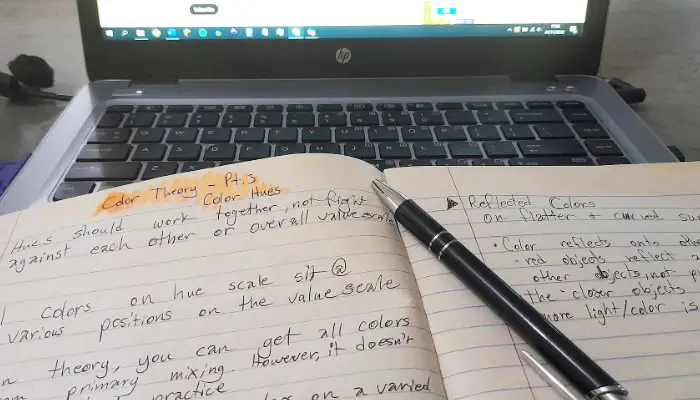 hp
Color Theory - Pt.3
Color Hues
Hues should work together, not fight
against each other or overall value scale
colors on hue scale sit @
various positions on the value scale
theory, you can get all colors
primary mixing. However, it doesn't
practice
on a varied
Reflected Colors
on flatter + curved
• Color reflects onto
- red objects reflect
other objects, not
the closer objects
more light/color is